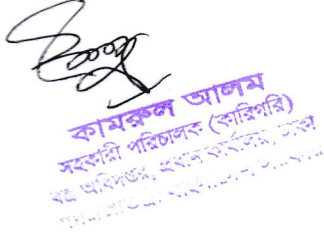 কামরুল আলম
সহকারী পরিচালক (কারিগরি)
বস্ত্র অধিদপ্তর, প্রধান কার্যালয়, ঢাকা